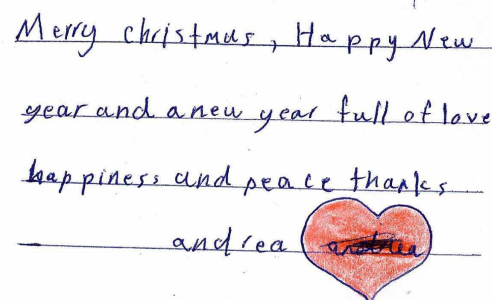 Merry christmas, Happy New
year and a new year full of love
happiness and peace thanks
andrea andrea